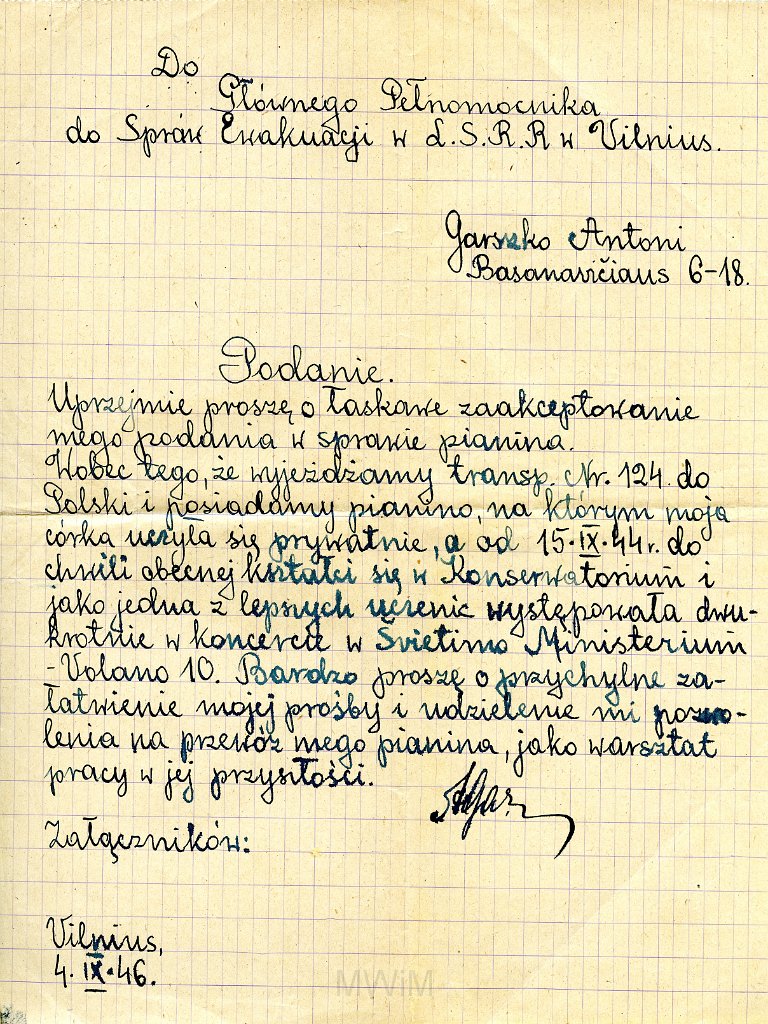 Do
Głównego Pełnomocnika
do Spraw Ewakuacji w L.S.R.R w Vilnius.
Garszko Antoni
Basanavičiaus 6-18.
Podanie.
Uprzejmie proszę o łaskawe zaakceptowanie
mego podania w sprawie pianina.
Wobec tego, że wyjeżdżamy transp. Nr. 124 do
Polski i posiadamy pianino, na którym moja
córka uczyła się prywatnie, a od 15.IX.44r. do
chwili obecnej kształci się w Konserwatorium i
jako jedna z lepszych uczenic występowała dwu-
krotnie w koncercie w Švietimo Ministerium
-Volano 10. Bardzo proszę o przychylne za-
łatwienie mojej prośby i udzielenie mi pozwo-
lenia na przewóz mego pianina, jako warsztat
pracy w jej przyszłości.
Załączników:
Vilnius,
4.IX.46.
MWiM